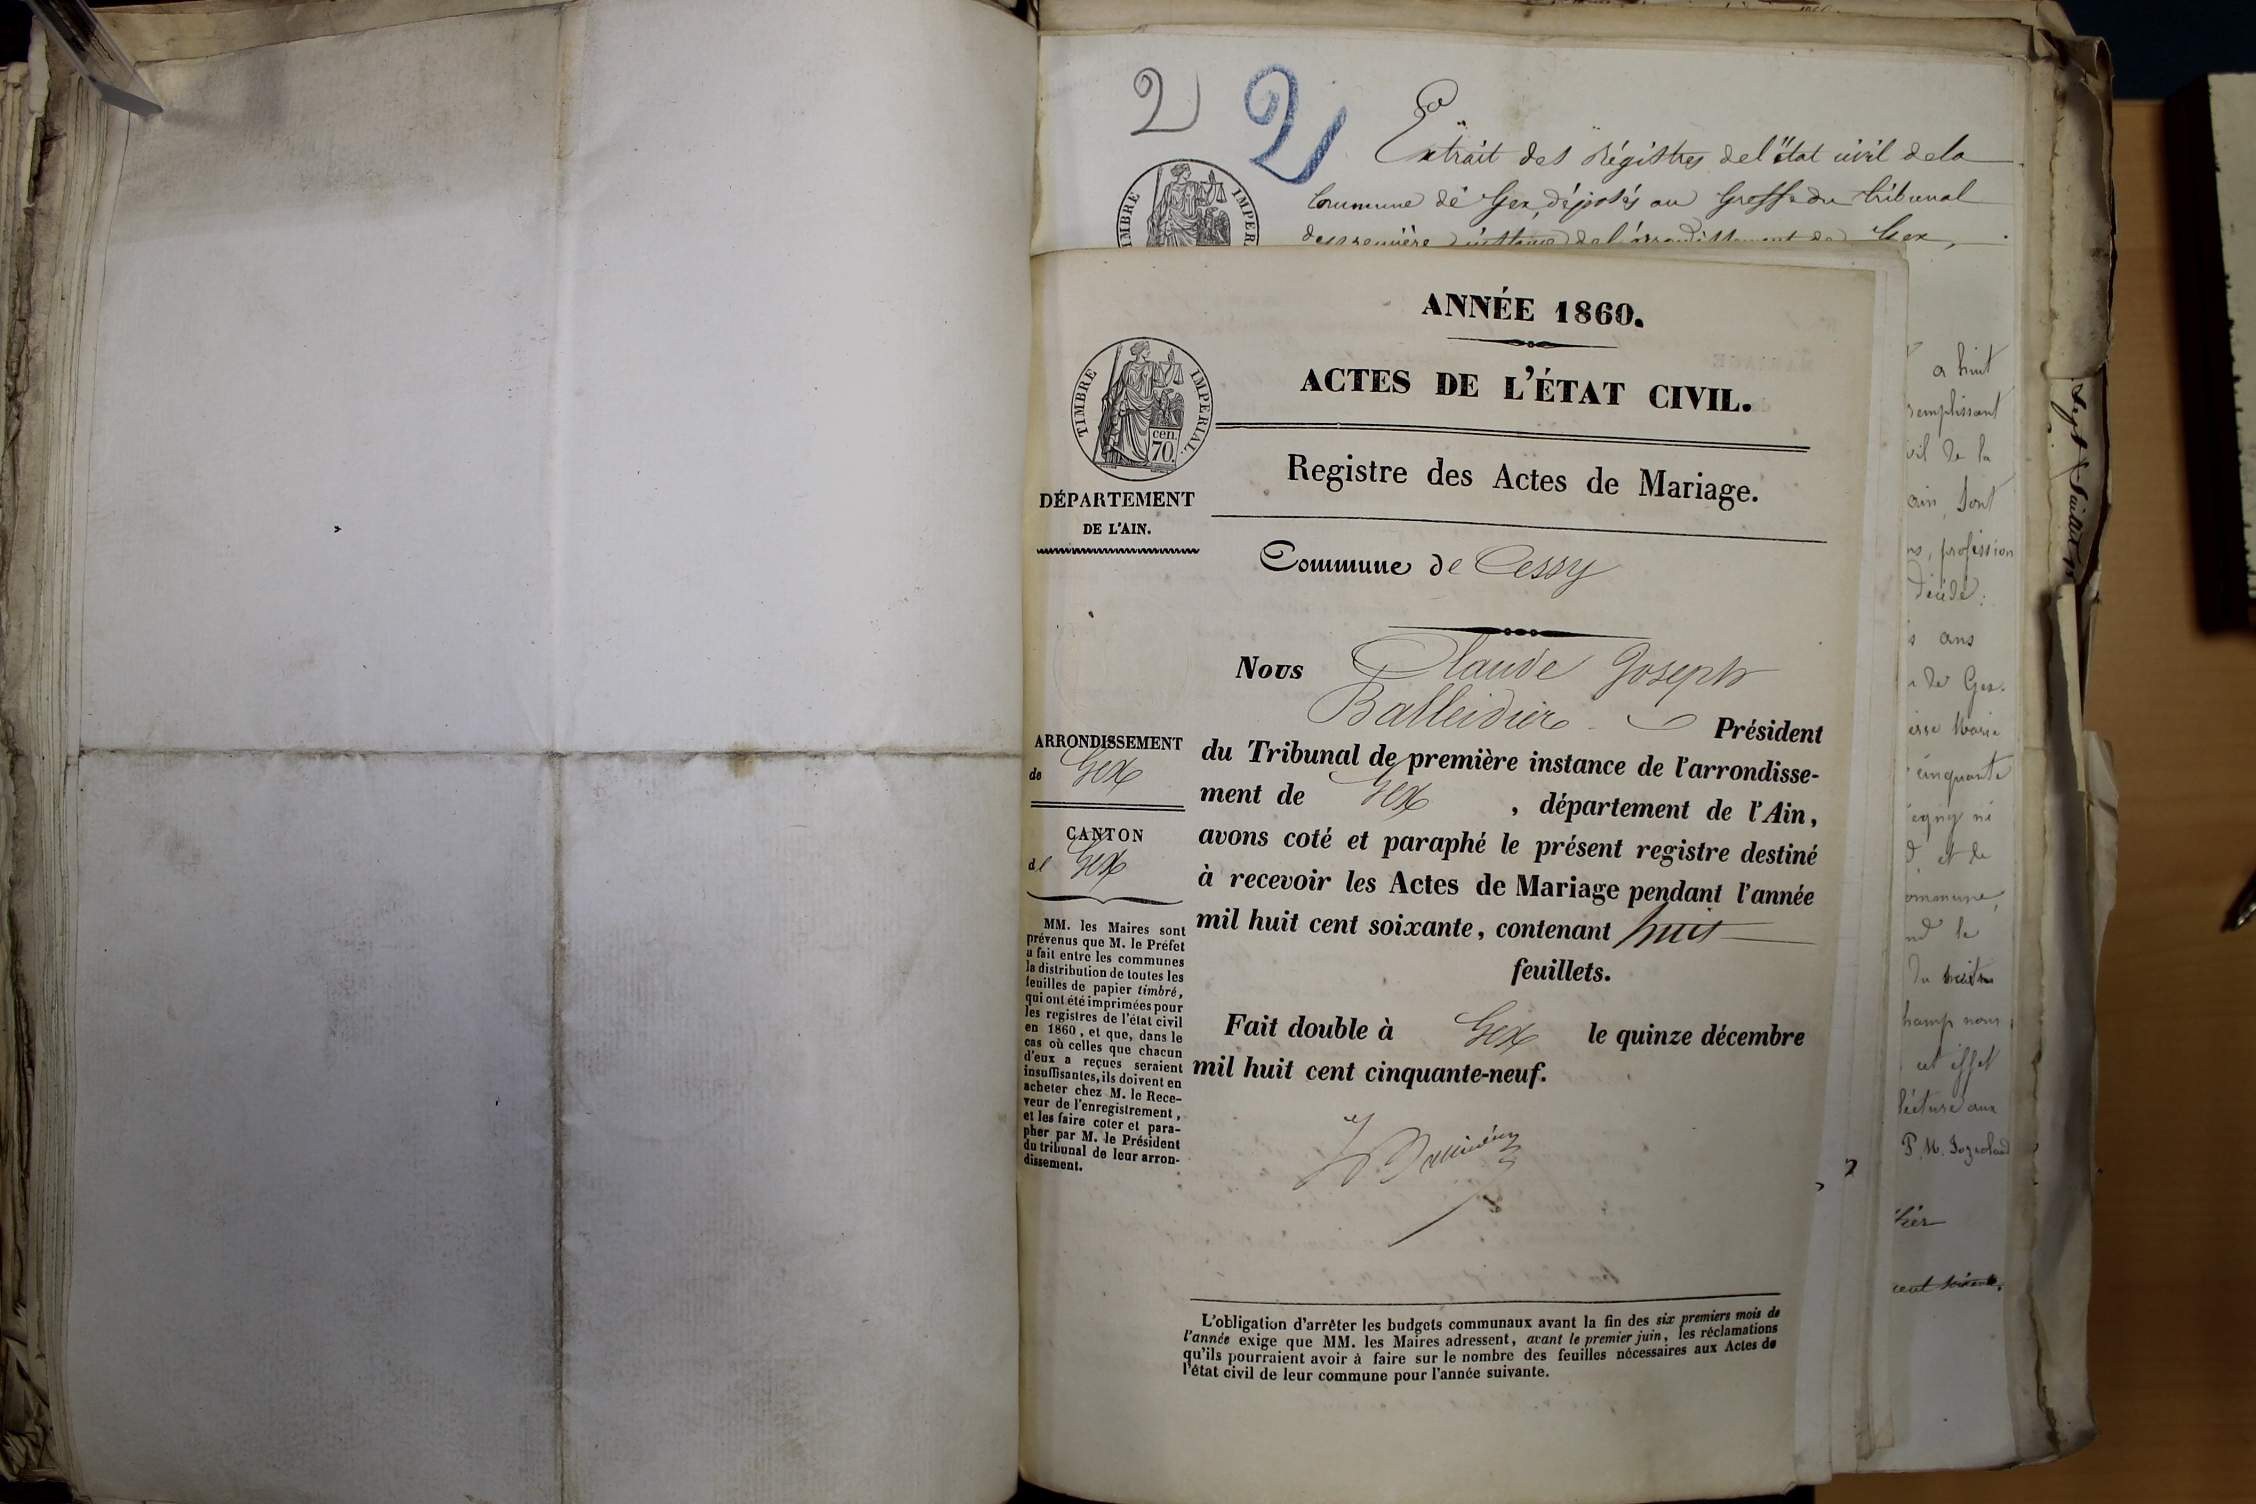 2 2
Extrait des Régistres de l'état civil de la
Commune de Gex, déposés au Greffe du tribunal
de première instance de l'arrondissement de Gex,
TIMBRE IMPER
ANNÉE 1860.
ACTES DE L'ÉTAT CIVIL.
TIMBRE IMPERIAL.
cen.
70.
Registre des Actes de Mariage.
DÉPARTEMENT
DE L'AIN.
Commune de Cessy
Nous Claude Joseph
Balleidier Président
du Tribunal de première instance de l'arrondisse-
ment de Gex, département de l'Ain,
avons coté et paraphé le présent registre destiné
à recevoir les Actes de Mariage pendant l'année
mil huit cent soixante, contenant huit
feuillets.
Fait double à Gex le quinze décembre
mil huit cent cinquante-neuf.
ARRONDISSEMENT
de Gex
CANTON
de Gex
MM. les Maires sont
prévenus que M. le Préfet
a fait entre les communes
la distribution de toutes les
feuilles de papier timbré,
qui ont été imprimées pour
les registres de l'état civil
en 1860, et que, dans le
cas où celles que chacun
d'eux a reçues seraient
insuffisantes, ils doivent en
acheter chez M. le Rece-
veur de l'enregistrement,
et les faire coter et para-
pher par M. le Président
du tribunal de leur arron-
dissement.
L'obligation d'arrêter les budgets communaux avant la fin des six premiers mois de
l'année exige que MM. les Maires adressent, avant le premier juin, les réclamations
qu'ils pourraient avoir à faire sur le nombre des feuilles nécessaires aux Actes de
l'état civil de leur commune pour l'année suivante.
a huit
remplissant
vil de la
ain, sont
ns, profession
décidé:
s ans
de Gex.
esse Marie
cinquante
et de
ommune,
nd le
hamp nous
cet effet
lecture aux
cent soixante.